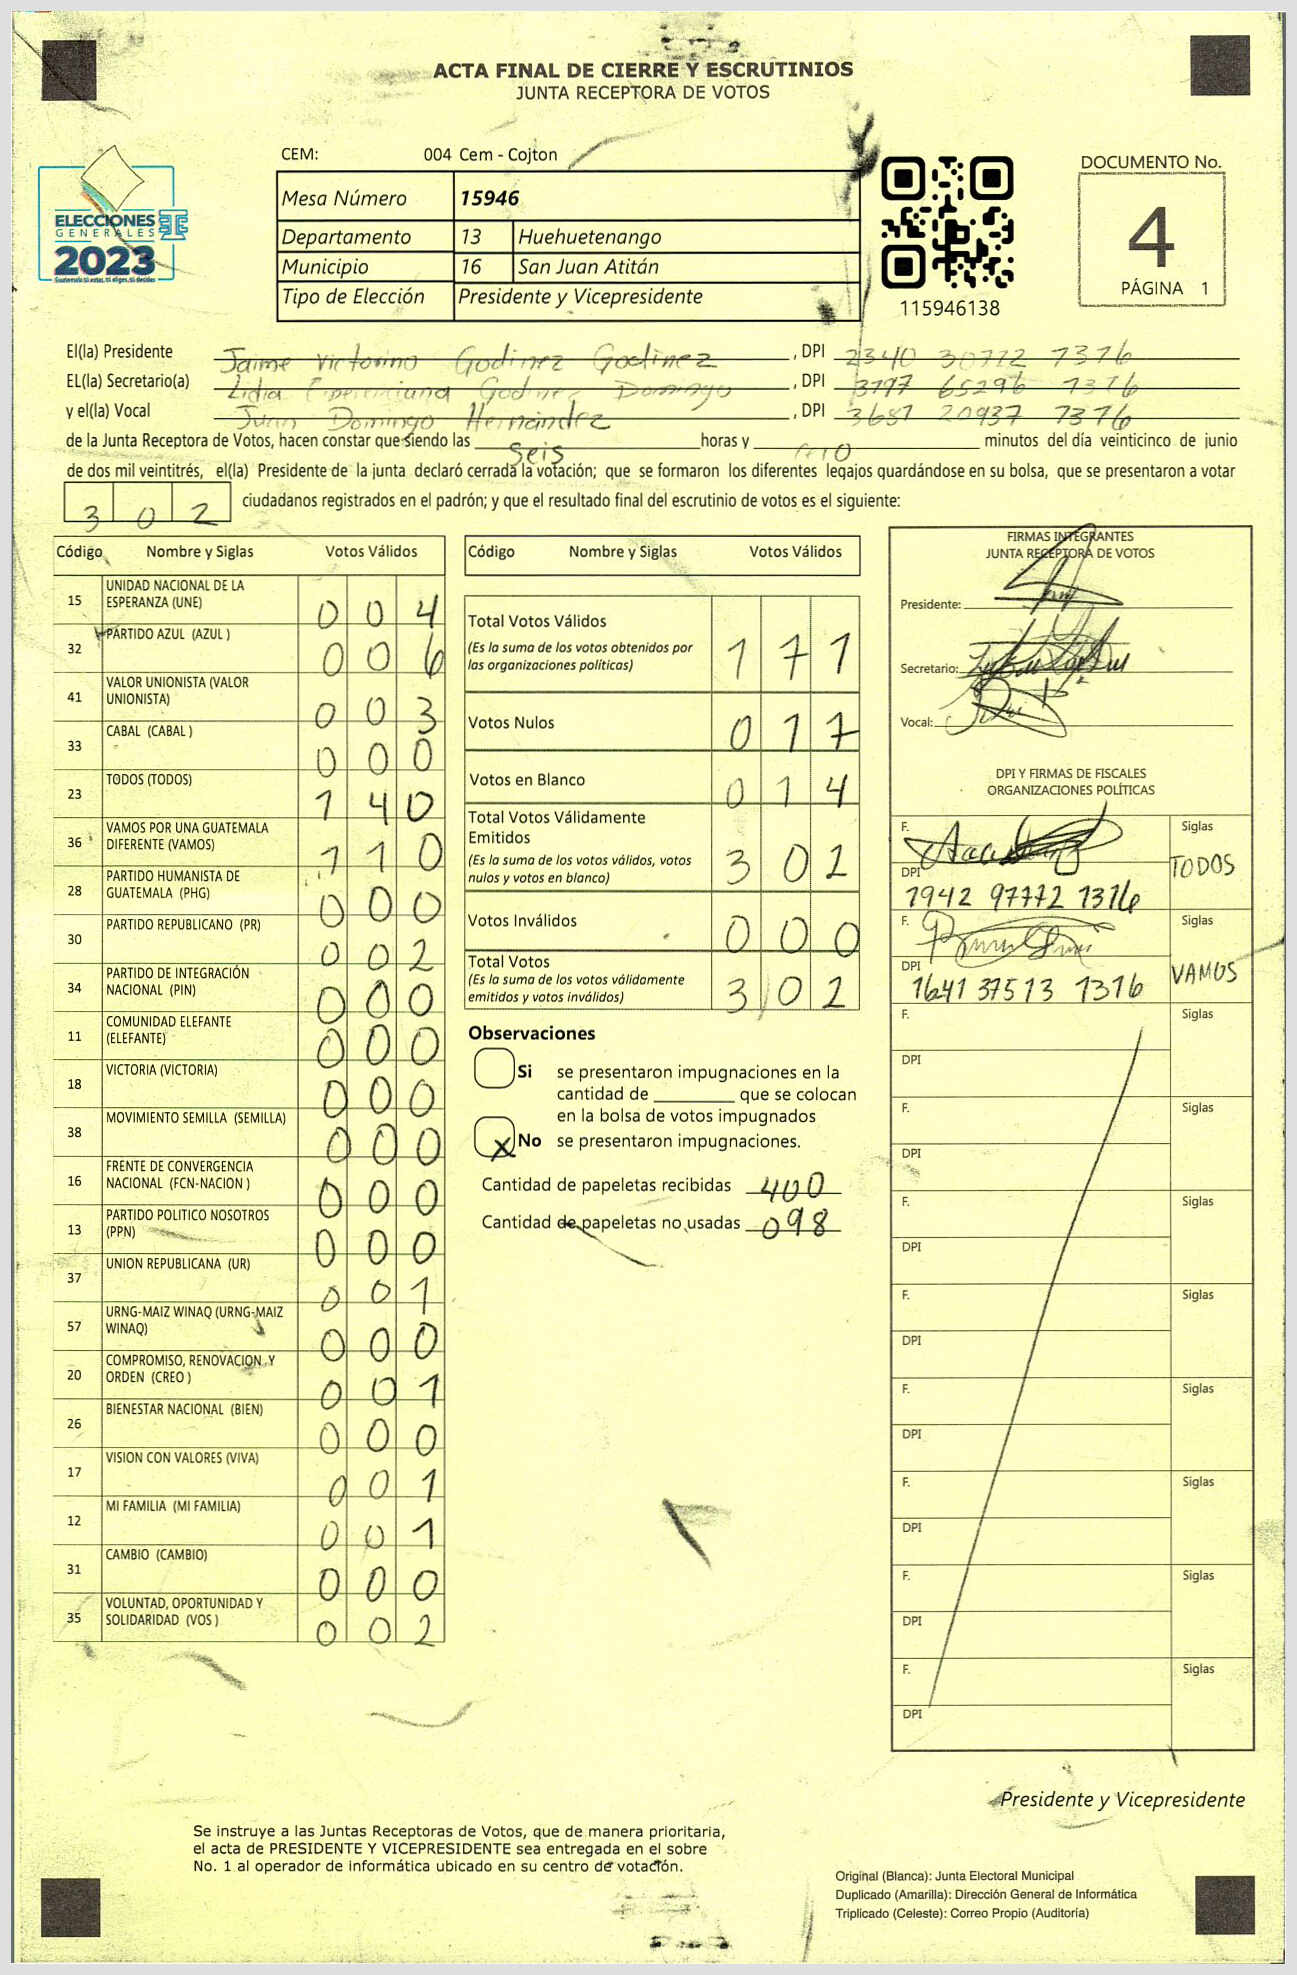 ACTA FINAL DE CIERRE Y ESCRUTINIOS
JUNTA RECEPTORA DE VOTOS
CEM: 004 Cem - Cojton
Mesa Número 15946
Departamento 13 Huehuetenango
Municipio 16 San Juan Atitán
Tipo de Elección Presidente y Vicepresidente
ELECCIONES
GENERALES
2023
115946138
DOCUMENTO No.
4
PÁGINA 1
El(la) Presidente Jaime Victorino Godinez Godinez, DPI 2340 30772 1316
EL(la) Secretario(a) Lidia Godinez Domingo, DPI 65296 1316
y el(la) Vocal Juan Domingo Hernández, DPI 3687 20937 1316
de la Junta Receptora de Votos, hacen constar que siendo las Seis horas y minutos del día veinticinco de junio
de dos mil veintitrés, el(la) Presidente de la junta declaró cerrada la votación; que se formaron los diferentes legajos quardándose en su bolsa, que se presentaron a votar
302 ciudadanos registrados en el padrón; y que el resultado final del escrutinio de votos es el siguiente:
Código Nombre y Siglas Votos Válidos
15 UNIDAD NACIONAL DE LA ESPERANZA (UNE) 0 0 4
32 PARTIDO AZUL (AZUL ) 0 0 6
41 VALOR UNIONISTA (VALOR UNIONISTA) 0 0 3
33 CABAL (CABAL ) 0 0 0
23 TODOS (TODOS) 1 4 0
36 VAMOS POR UNA GUATEMALA DIFERENTE (VAMOS) 1 1 0
28 PARTIDO HUMANISTA DE GUATEMALA (PHG) 0 0 0
30 PARTIDO REPUBLICANO (PR) 0 0 2
34 PARTIDO DE INTEGRACIÓN NACIONAL (PIN) 0 0 0
11 COMUNIDAD ELEFANTE (ELEFANTE) 0 0 0
18 VICTORIA (VICTORIA) 0 0 0
38 MOVIMIENTO SEMILLA (SEMILLA) 0 0 0
16 FRENTE DE CONVERGENCIA NACIONAL (FCN-NACION ) 0 0 0
13 PARTIDO POLITICO NOSOTROS (PPN) 0 0 0
37 UNION REPUBLICANA (UR) 0 0 1
57 URNG-MAIZ WINAQ (URNG-MAIZ WINAQ) 0 0 0
20 COMPROMISO, RENOVACION Y ORDEN (CREO ) 0 0 1
26 BIENESTAR NACIONAL (BIEN) 0 0 0
17 VISION CON VALORES (VIVA) 0 0 1
12 MI FAMILIA (MI FAMILIA) 0 0 1
31 CAMBIO (CAMBIO) 0 0 0
35 VOLUNTAD, OPORTUNIDAD Y SOLIDARIDAD (VOS ) 0 0 2
Código Nombre y Siglas Votos Válidos
Total Votos Válidos 1 7 1
(Es la suma de los votos obtenidos por
las organizaciones políticas)
Votos Nulos 0 1 7
Votos en Blanco 0 1 4
Total Votos Válidamente
Emitidos 3 0 2
(Es la suma de los votos válidos, votos
nulos y votos en blanco)
Votos Inválidos 0 0 0
Total Votos 3 0 2
(Es la suma de los votos válidamente
emitidos y votos inválidos)
Observaciones
Si se presentaron impugnaciones en la
cantidad de ________ que se colocan
en la bolsa de votos impugnados
X No se presentaron impugnaciones.
Cantidad de papeletas recibidas 400
Cantidad de papeletas no usadas 098
FIRMAS INTEGRANTES
JUNTA RECEPTORA DE VOTOS
Presidente:
Secretario:
Vocal:
DPI Y FIRMAS DE FISCALES
ORGANIZACIONES POLÍTICAS
F. Siglas
TODOS
DPI 1942 97772 1316
F. Siglas
VAMOS
DPI 1641 37513 1316
F. Siglas
DPI
F. Siglas
DPI
F. Siglas
DPI
F. Siglas
DPI
F. Siglas
DPI
F. Siglas
DPI
F. Siglas
DPI
F. Siglas
DPI
Presidente y Vicepresidente
Se instruye a las Juntas Receptoras de Votos, que de manera prioritaria,
el acta de PRESIDENTE Y VICEPRESIDENTE sea entregada en el sobre
No. 1 al operador de informática ubicado en su centro de votación.
Original (Blanca): Junta Electoral Municipal
Duplicado (Amarilla): Dirección General de Informática
Triplicado (Celeste): Correo Propio (Auditoría)